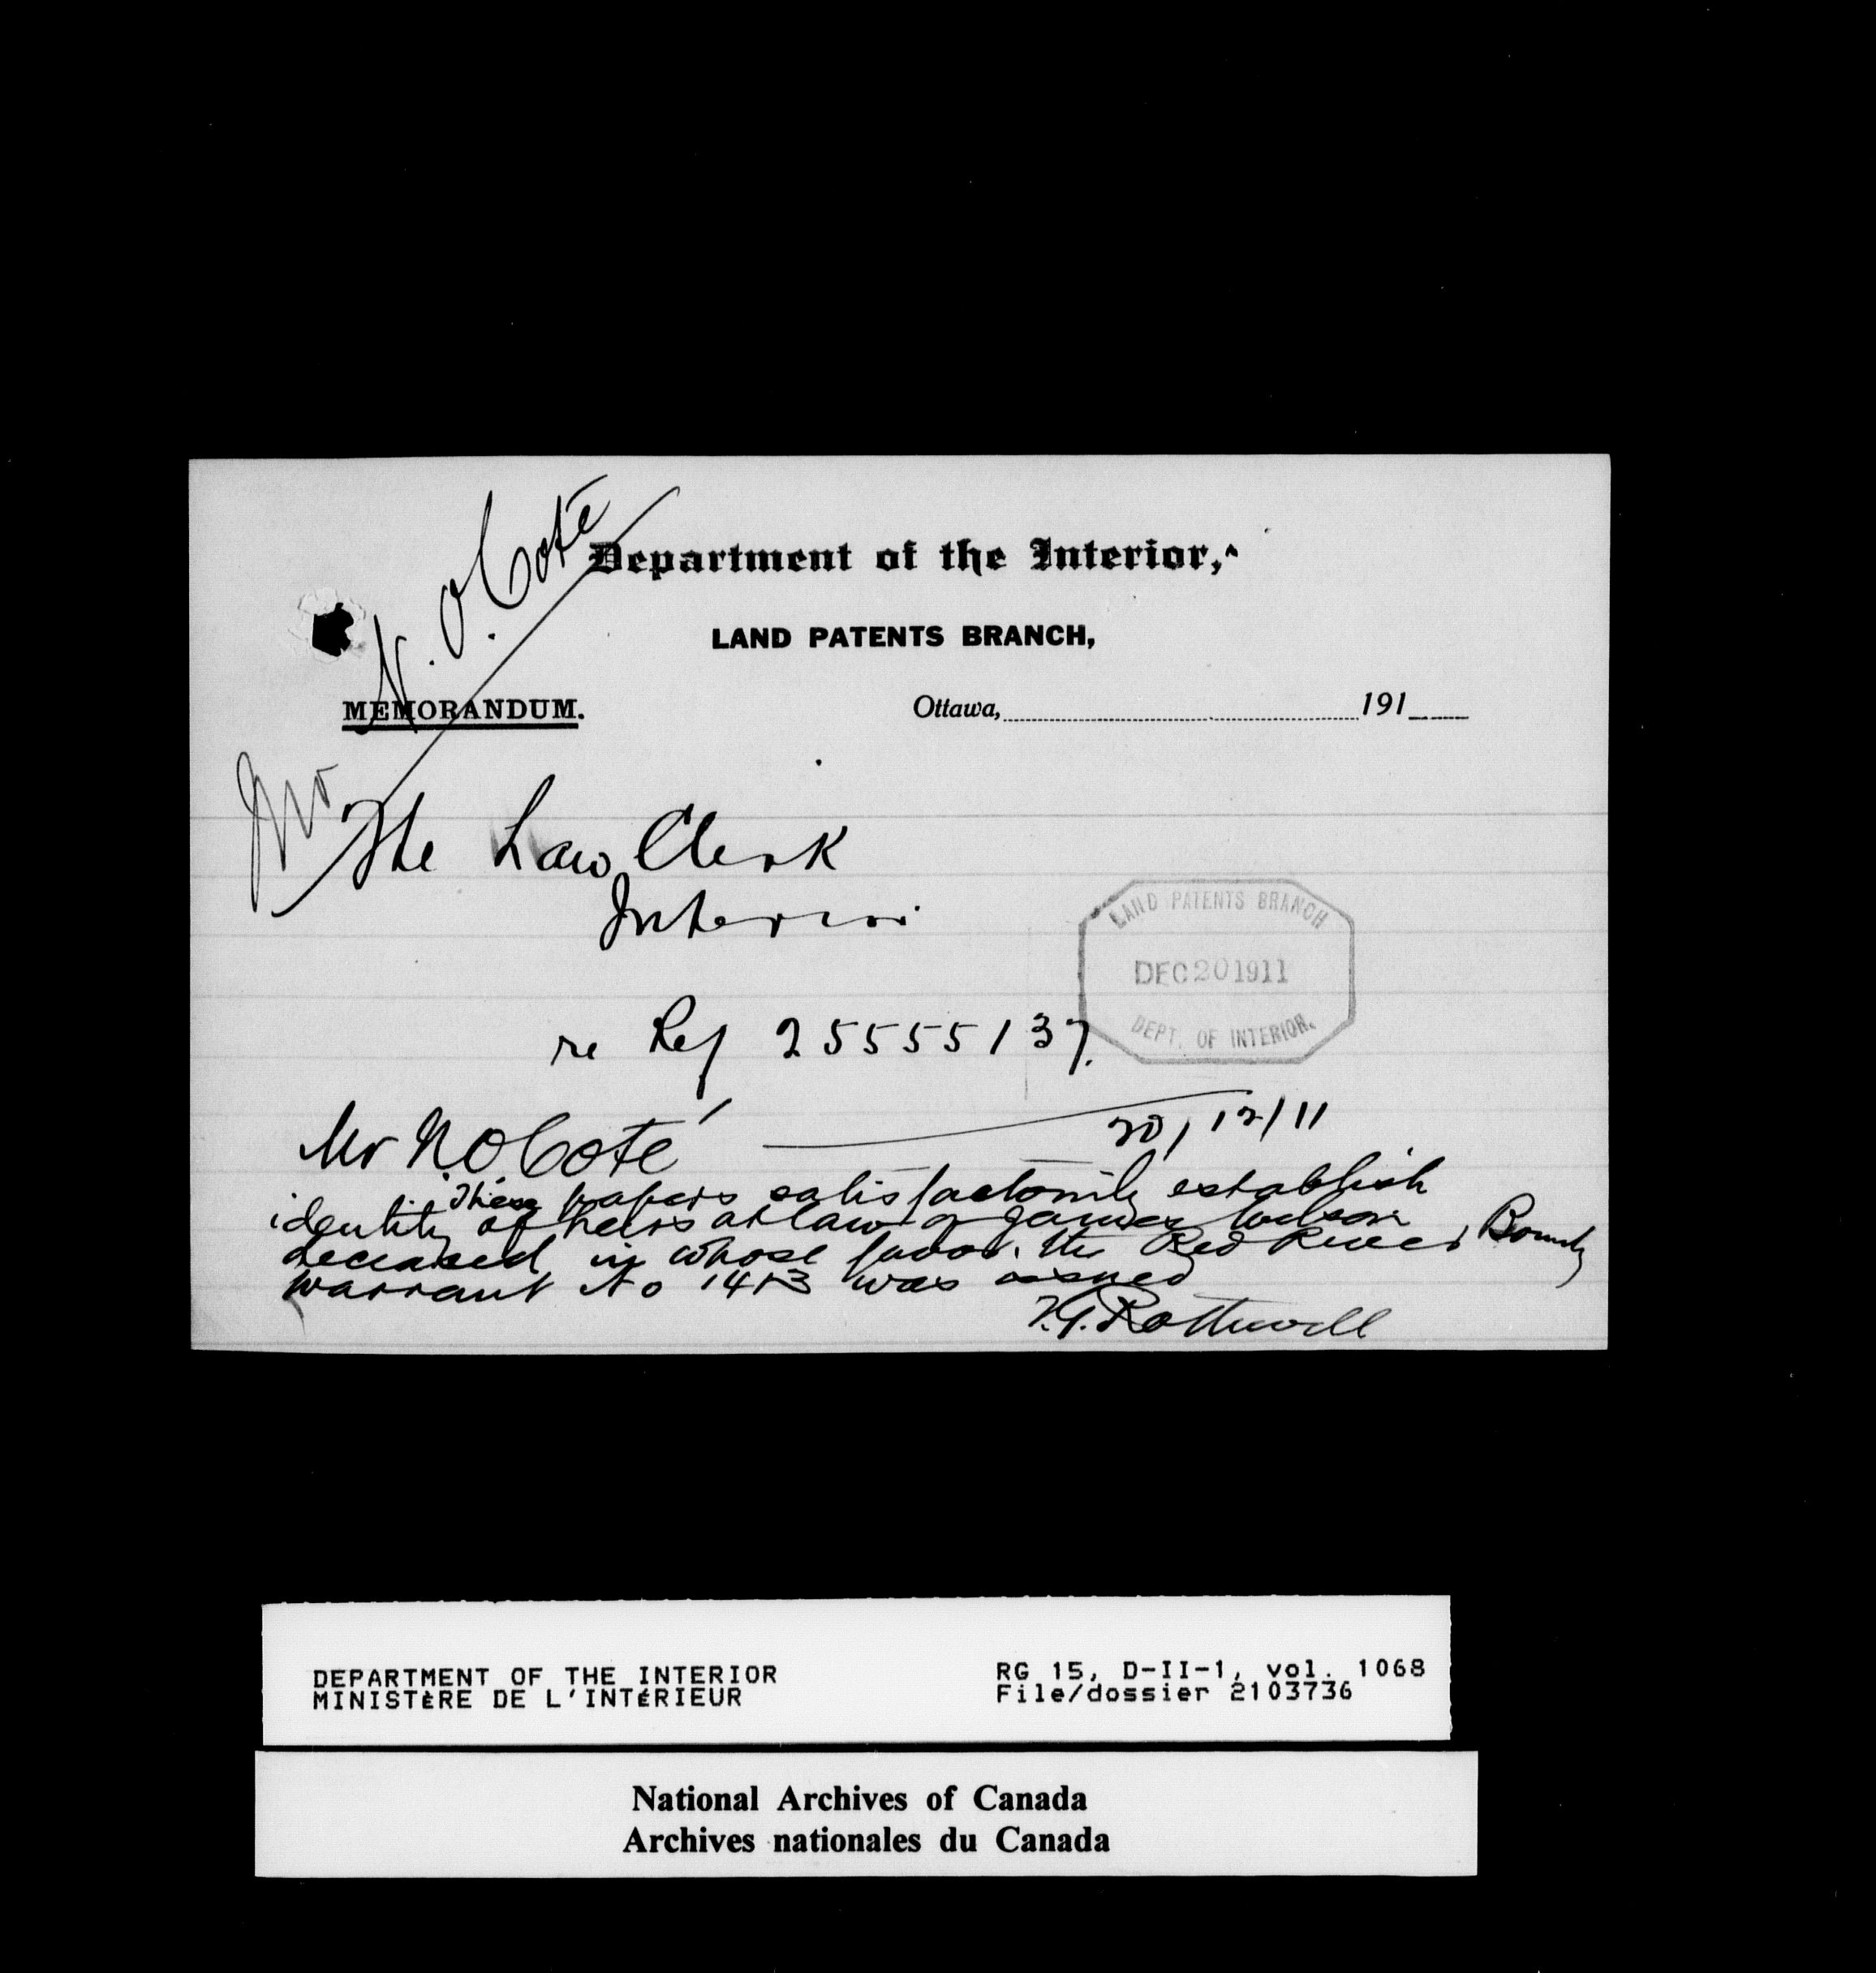 N. O. Coté
Department of the Interior,
LAND PATENTS BRANCH,
MEMORANDUM.
Ottawa, 191
The Law Clerk
Interior
LAND PATENTS BRANCH
DEC 20 1911
DEPT. OF INTERIOR.
re Ref 2555513
20/12/11
Mr N. O Coté
These papers satisfactorily establish
identity of heirs at law of James Wilson
deceased in whose favor the Red River Bounty
warrant No was issued
T.G. Rothwell
DEPARTMENT OF THE INTERIOR
MINISTÈRE DE L'INTÉRIEUR
RG 15, D-II-1, vol. 1068
File/dossier 2103736
National Archives of Canada
Archives nationales du Canada